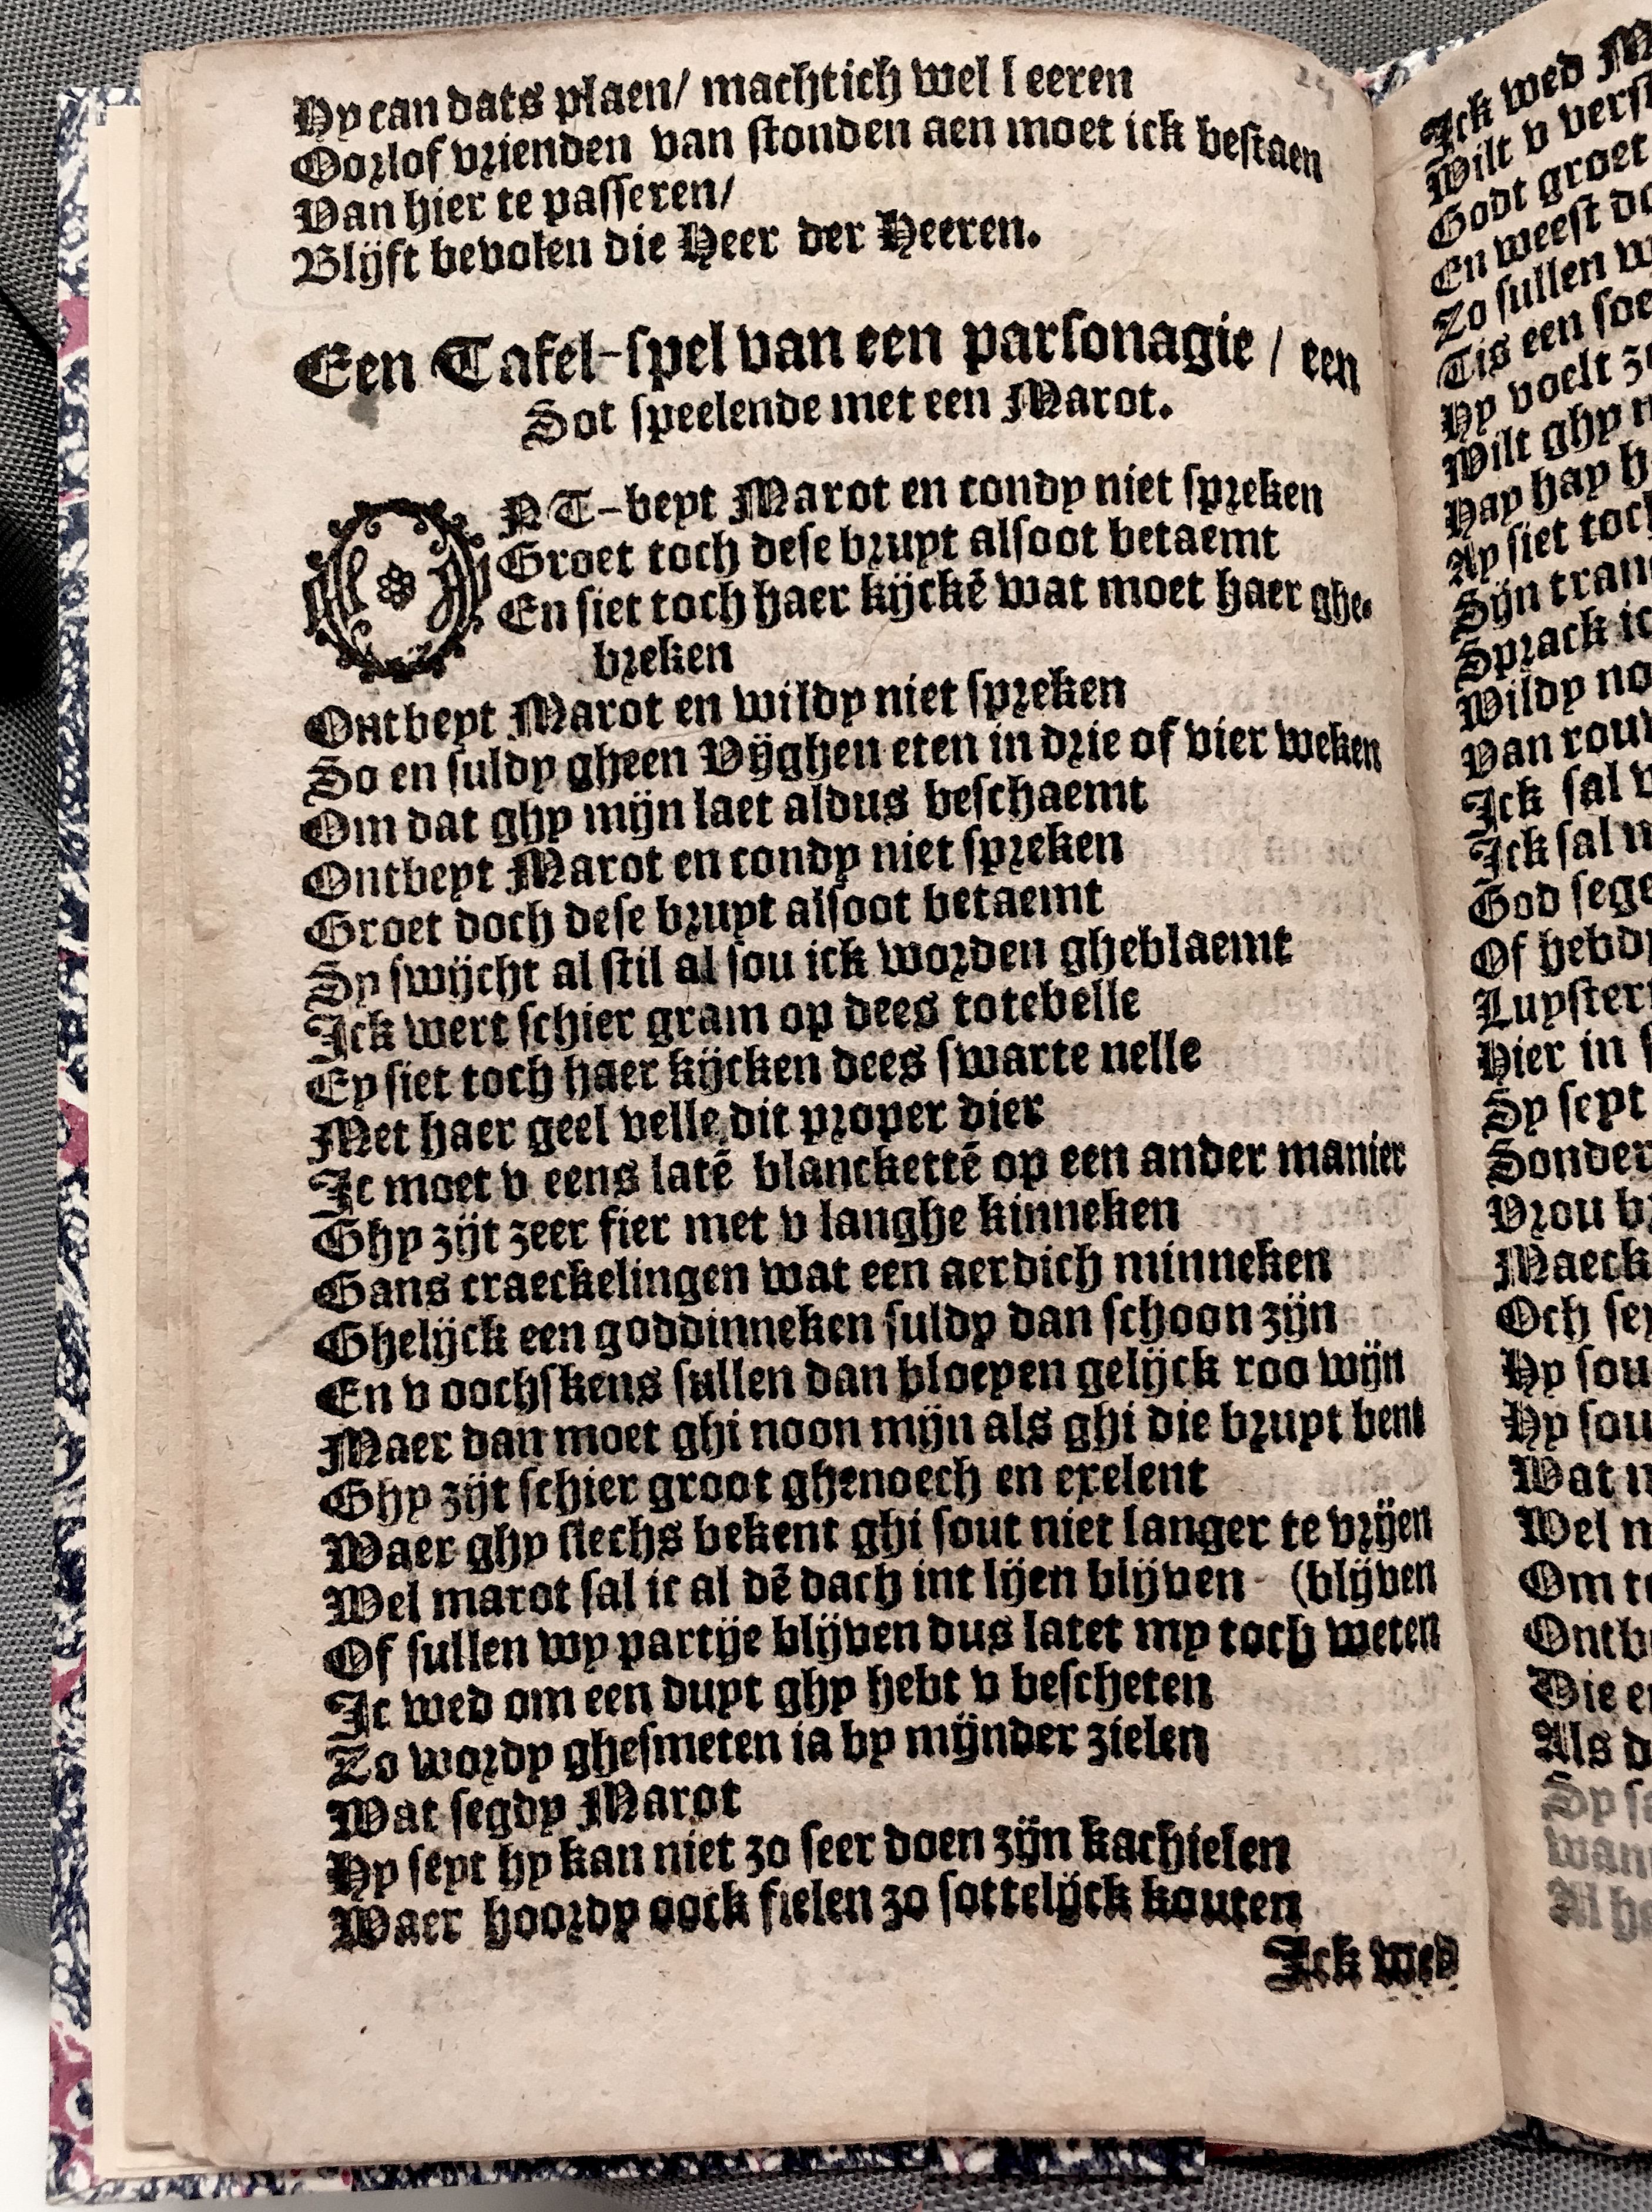 Hy can dats plaen/ machtich wel leeren
Oorlof vrienden van stonden aen moet ick bestaen
Van hier te passeren/
Blijft bevolen die Heer der Heeren.
Een Tafel-spel van een parsonagie / een
Sot speelende met een Marot.
ONT-beyt Marot en condy niet spreken
Groet toch dese bruyt alsoot betaemt
En siet toch haer kijckē wat moet haer ghe-
breken
Ontbeyt Marot en wildy niet spreken
So en suldy gheen Vijghen eten in drie of vier weken
Om dat ghy mijn laet aldus beschaemt
Ontbeyt Marot en condy niet spreken
Groet doch dese bruyt alsoot betaemt
Sy swijcht al stil al sou ick worden gheblaemt
Ick wert schier gram op dees totebelle
Ey siet toch haer kijcken dees swarte nelle
Met haer geel velle dit proper dier
Ic moet v eens latē blanckettē op een ander manier
Ghy zijt zeer fier met v langhe kinneken
Gans craeckelingen wat een aerdich minneken
Ghelijck een goddinneken suldy dan schoon zijn
En v oochskens sullen dan bloeyen gelijck roo wijn
Maer dan moet ghi noon mijn als ghi die bruyt bent
Ghy zijt schier groot ghenoech en exelent
Waer ghy slechs bekent ghi sout niet langer te vrijen
Wel marot sal ic al dē dach int lijen blijven (blijven
Of sullen wy partije blijven dus latet my toch weten
Ic wed om een duyt ghy hebt v bescheten
Zo wordy ghesmeten ia by mijnder zielen
Wat segdy Marot
Hy seyt hy kan niet zo seer doen zijn kachielen
Waer hoordy oock fielen zo sottelijck kouten
Ick wed
Ick wed
Wilt v
Godt groet
En weest
Zo sullen
Tis een
Hy voelt
Wilt ghy
Hay hay
Ay siet toch
Sijn
Sprack
Wildy
Van
Ick sal
Ick sal
God
Of hebdy
Hier in
Sy seyt
Sonder
Vrou
Och
Hy sou
Hy sou
Wat
Wel
Om
Die
Als